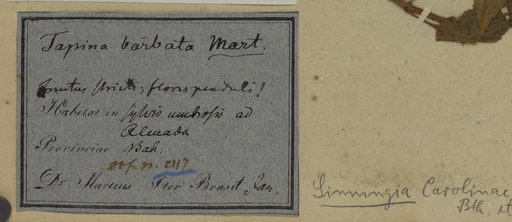 Tapina barbata Mart.
floris penduli!
Habitat in sylvis umbrosis ad
Almada
Provinciae Bah.
Obs. n. 2117
Dr. Martius Iter Brasil. Jan.
Sinningia Carolinae
Bth. et